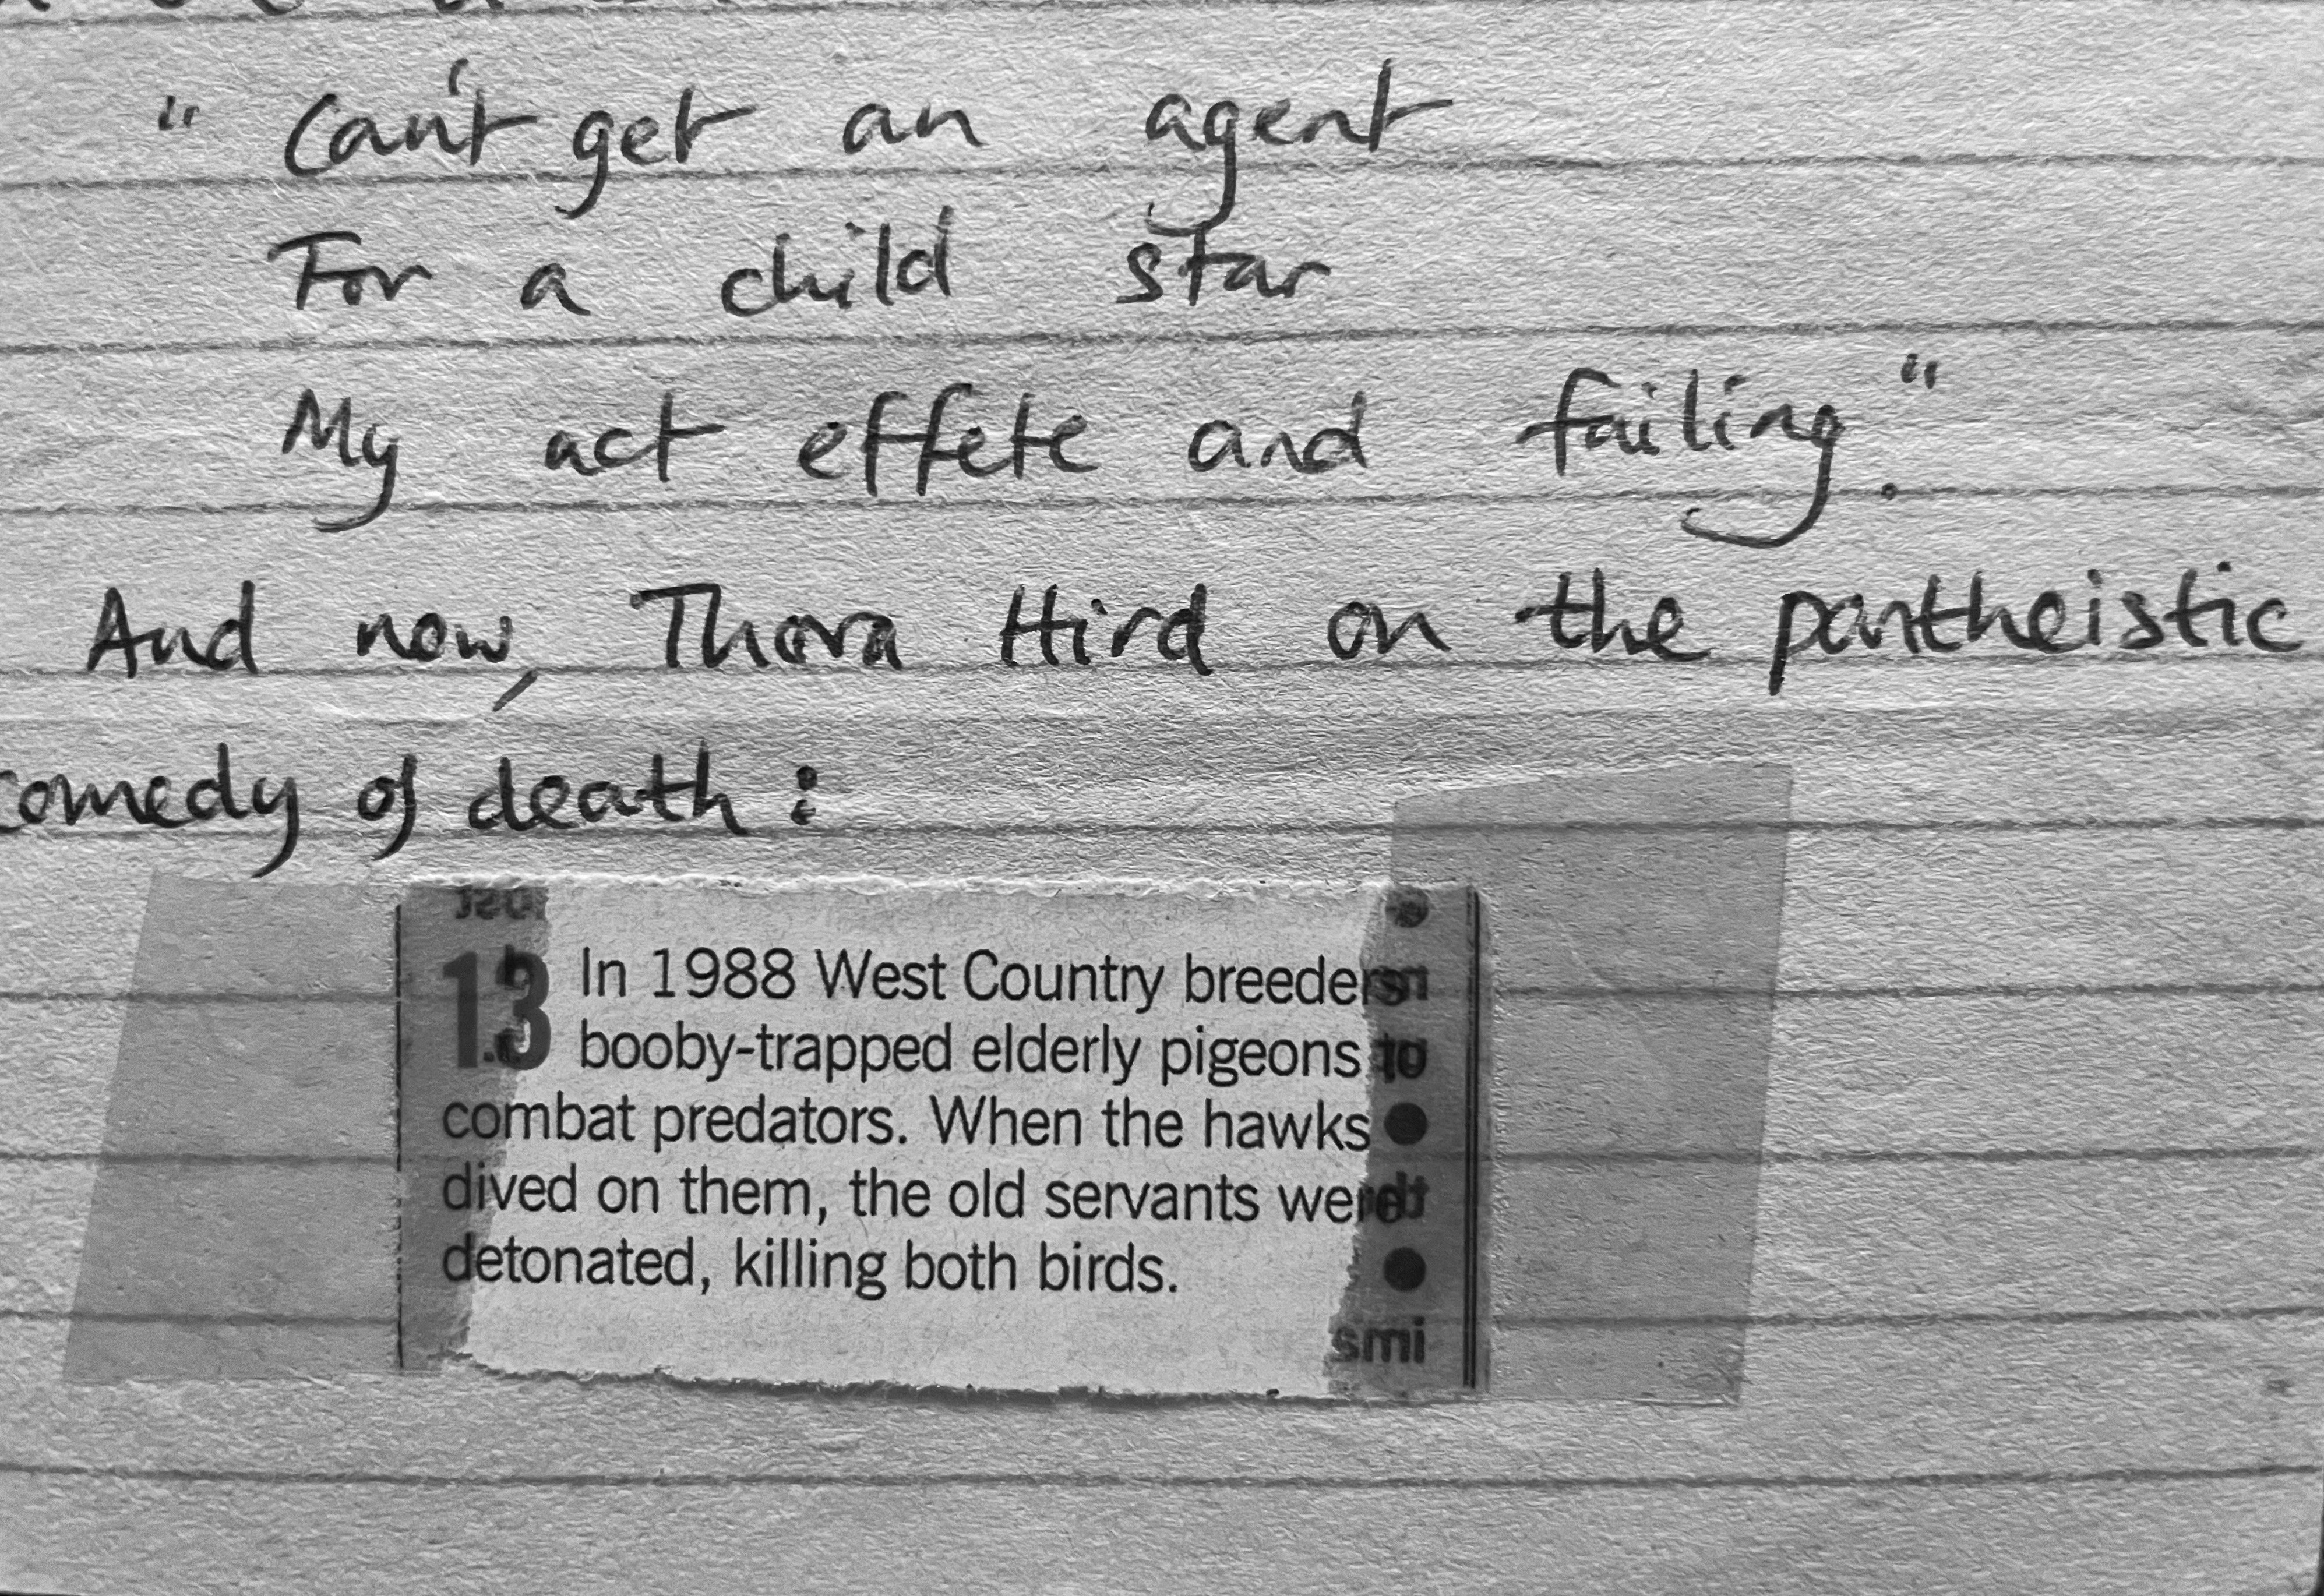 "Can't get an agent
For a child star
My act effete and failing."
And now, Thora Hird on the pantheistic
comedy of death:
13 In 1988 West Country breeders
booby-trapped elderly pigeons to
combat predators. When the hawks
dived on them, the old servants were
detonated, killing both birds.
smi